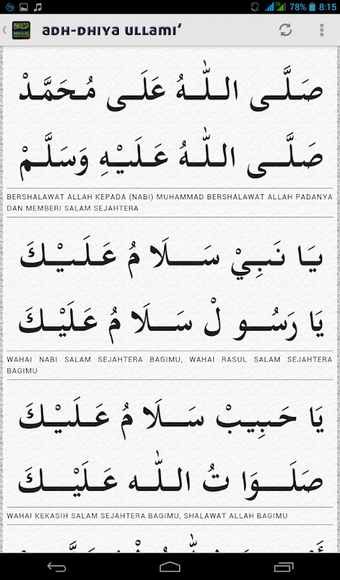 78% 8:15
ADH-DHIYA ULLAMI'
صَلَّــى اللّٰــهُ عَلَــى مُـحَـمَّـدْ
صَلَّــى اللّٰــهُ عَـلَـيْـهِ وَسَـلَّـمْ
BERSHALAWAT ALLAH KEPADA (NABI) MUHAMMAD BERSHALAWAT ALLAH PADANYA
DAN MEMBERI SALAM SEJAHTERA
يـَا نَـبِـيْ سَـــلَا مُ عَـلَـيْـكَ
يَا رَسُــو لْ سَــلَا مُ عَلَيْـكَ
WAHAI NABI SALAM SEJAHTERA BAGIMU, WAHAI RASUL SALAM SEJAHTERA
BAGIMU
يَا حَـبِـيـبْ سَـــلَا مُ عَـلَـيْـكَ
صَلَــوَا تُ اللّٰــه عَـلَـيْــكَ
WAHAI KEKASIH SALAM SEJAHTERA BAGIMU, SHALAWAT ALLAH BAGIMU